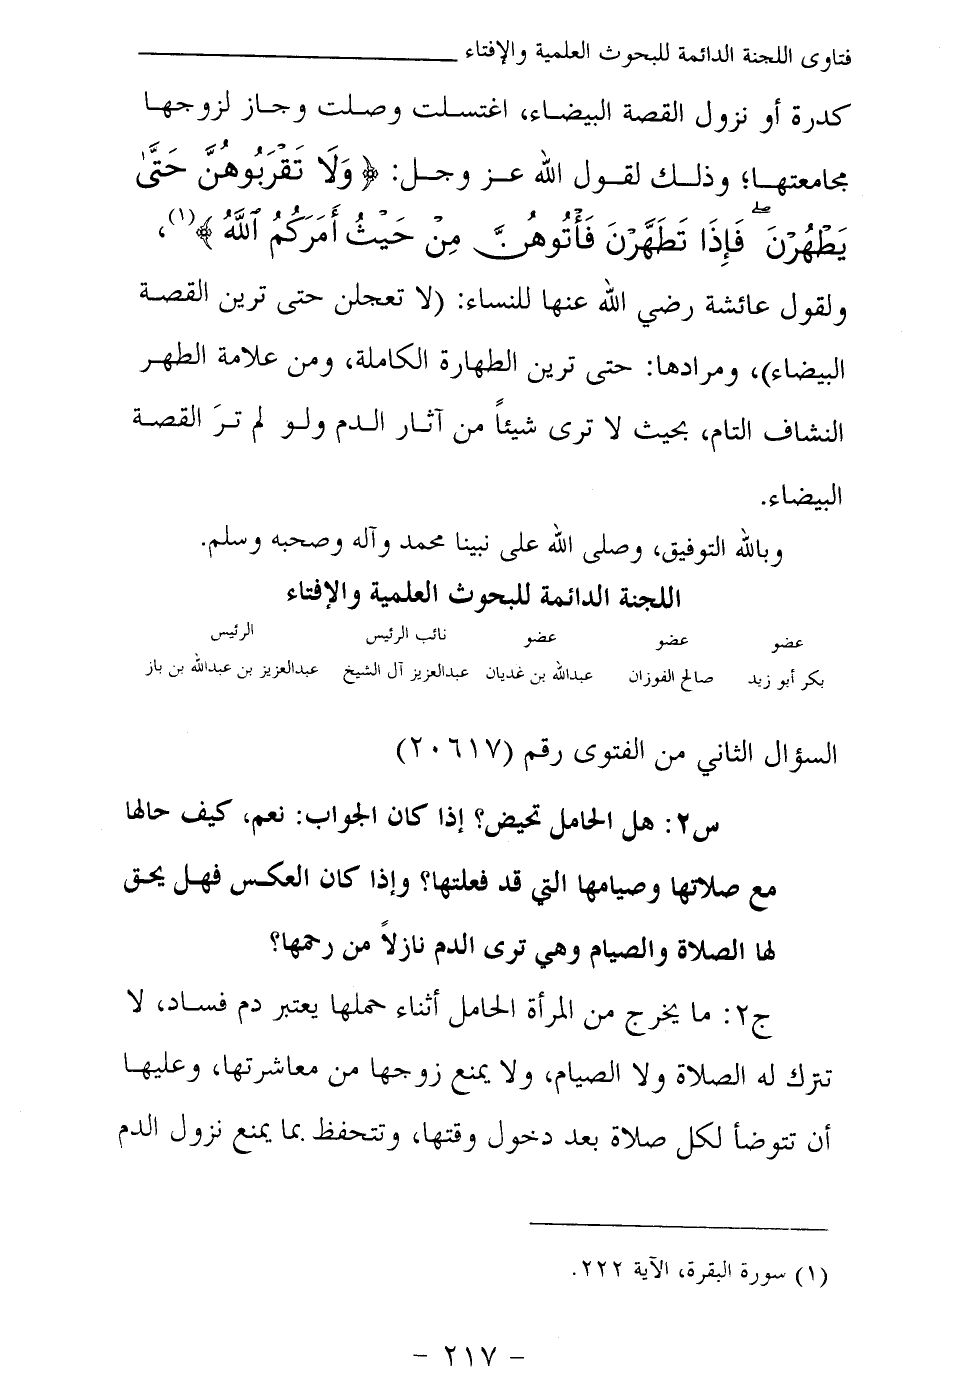 فتاوى اللجنة الدائمة للبحوث العلمية والإفتاء
كدرة أو نزول القصة البيضاء، اغتسلت وصلت وجاز لزوجها
مجامعتها؛ وذلك لقول الله عز وجل: ﴿ وَلَا تَقْرَبُوهُنَّ حَتَّىٰ
يَطْهُرْنَ ۖ فَإِذَا تَطَهَّرْنَ فَأْتُوهُنَّ مِنْ حَيْثُ أَمَرَكُمُ ٱللَّهُ ﴾(١)،
ولقول عائشة رضي الله عنها للنساء: (لا تعجلن حتى ترين القصة
البيضاء)، ومرادها: حتى ترين الطهارة الكاملة، ومن علامة الطهر
النشاف التام، بحيث لا ترى شيئاً من آثار الدم ولو لم ترَ القصة
البيضاء.
وبالله التوفيق، وصلى الله على نبينا محمد وآله وصحبه وسلم.
اللجنة الدائمة للبحوث العلمية والإفتاء
عضو عضو عضو نائب الرئيس الرئيس
بكر أبو زيد صالح الفوزان عبدالله بن غديان عبدالعزيز آل الشيخ عبدالعزيز بن عبدالله بن باز
السؤال الثاني من الفتوى رقم (٢٠٦١٧)
س٢: هل الحامل تحيض؟ إذا كان الجواب: نعم، كيف حالها
مع صلاتها وصيامها التي قد فعلتها؟ وإذا كان العكس فهل يحق
لها الصلاة والصيام وهي ترى الدم نازلاً من رحمها؟
ج٢: ما يخرج من المرأة الحامل أثناء حملها يعتبر دم فساد، لا
تترك له الصلاة ولا الصيام، ولا يمنع زوجها من معاشرتها، وعليها
أن تتوضأ لكل صلاة بعد دخول وقتها، وتتحفظ بما يمنع نزول الدم
(١) سورة البقرة، الآية ٢٢٢.
- ٢١٧ -